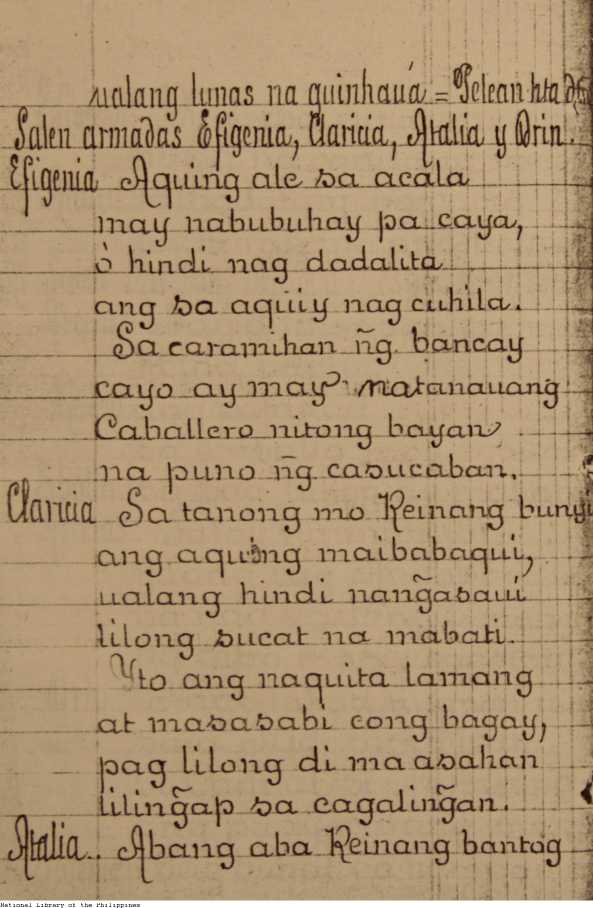 ualang lunas na guinhaua = Pelean hta
Salen armadas Efigenia, Claricia, Atalia y Orin.
Efigenia Aquing ale sa acala
may nabubuhay pa caya,
ò hindi nag dadalita
ang sa aquiy nag cuhila.
Sa caramihan ñg bancay
cayo ay may matanauang
Caballero nitong bayan
na puno ñg casucaban.
Claricia Sa tanong mo Reinang bunyi
ang aquing maibabaqui,
ualang hindi nang̃asaui
lilong sucat na mabati.
Yto ang naquita lamang
at masasabi cong bagay,
pag lilong di ma asahan
liling̃ap sa cagaling̃an.
Atalia.. Abang aba Reinang bantog
National Library of the Philippines